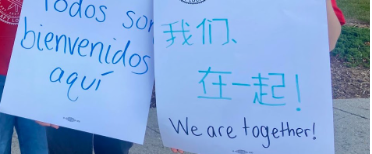 Todos son
bienvenidos
aquí
我们、
在一起!
We are together!